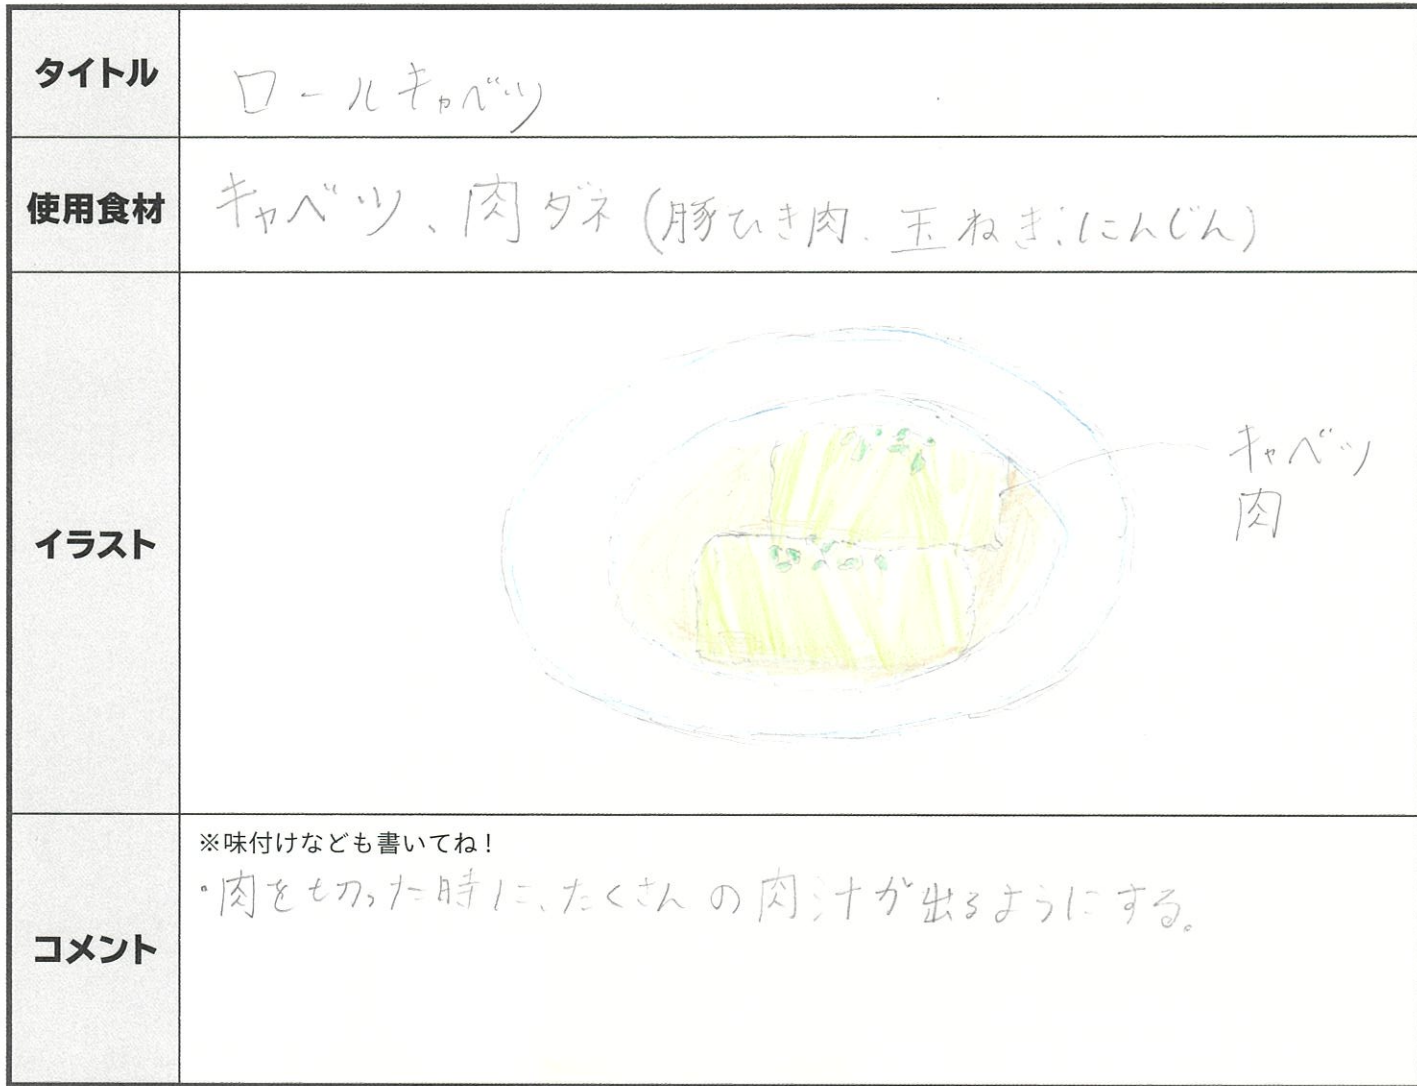 タイトル
ロールキャベツ
使用食材
キャベツ、肉ダネ(豚ひき肉、玉ねぎ、にんじん)
イラスト
キャベツ
肉
コメント
※味付けなども書いてね!
・肉を切った時に、たくさんの肉汁が出るようにする。